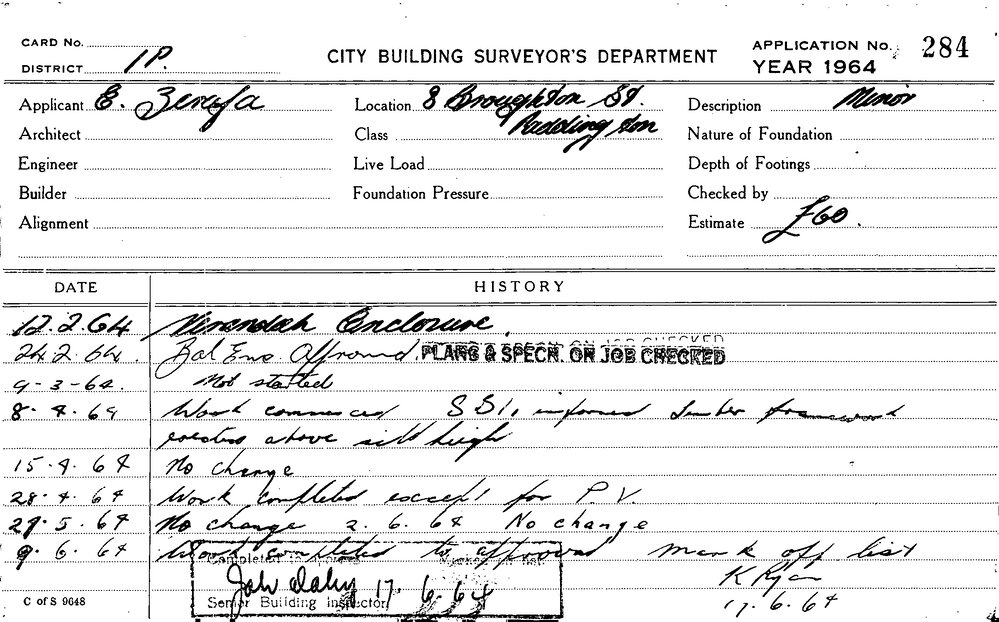 CARD No.
DISTRICT 1P.
CITY BUILDING SURVEYOR'S DEPARTMENT
APPLICATION No. 284
YEAR 1964
Applicant E. Location 8 Broughton St. Description Minor
Architect Class Paddington Nature of Foundation
Engineer Live Load Depth of Footings
Builder Foundation Pressure Checked by
Alignment Estimate £60.
DATE HISTORY
12.2.64 Verandah Enclosure.
24.2.64 Bal Enc Approved. PLANS & SPECN. ON JOB CHECKED
9-3-64. Not started
8.4.64 Work commenced SSI, informed timber framework
erected above sill heigh
15.4.64 No change
28.4.64 Work completed except for P.V
27.5.64 No change 2.6.64 No change
9.6.64 Work completed to approval mark off list
K Ryan
17.6.64
Completed
17.6.64
Senior Building Inspector
C of S 9648